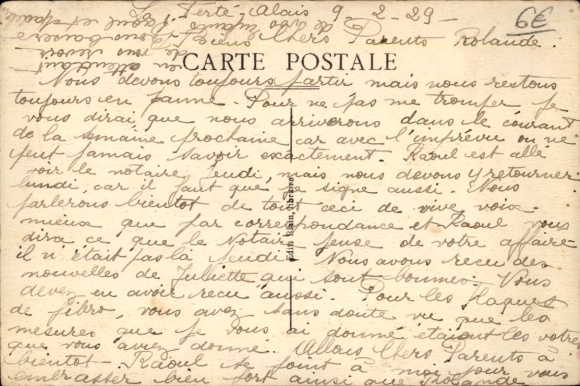 La Ferté-Alais 9-2-29-
6€
Biens Chers Parents Rolande.
CARTE POSTALE
Nous devons toujours partir mais nous restons
toujours en panne. Pour ne pas me tromper je
vous dirai que nous arriverons dans le courant
de la semaine prochaine car avec l'imprévu on ne
peut jamais savoir exactement. Raoul est allé
voir le notaire Jeudi, mais nous devons y retourner
lundi, car il faut que je signe aussi. Nous
parlerons bientôt de tout ceci de vive voix
mieux que par correspondance et Raoul vous
dira ce que le Notaire pense de votre affaire
il n'était pas là Jeudi. Nous avons reçu des
nouvelles de Juliette qui sont bonnes. Vous
devez en avoir reçu aussi. Pour les plaques
de fibro, vous avez sans doute vu que les
mesures que je vous ai donné étaient les votres
que vous aviez donné. Allons Chers Parents à
bientôt. Raoul se joint à moi pour vous
embrasser bien fort ainsi que Rolande
en attendant
de vous revoir
Edit. Klein, libraire